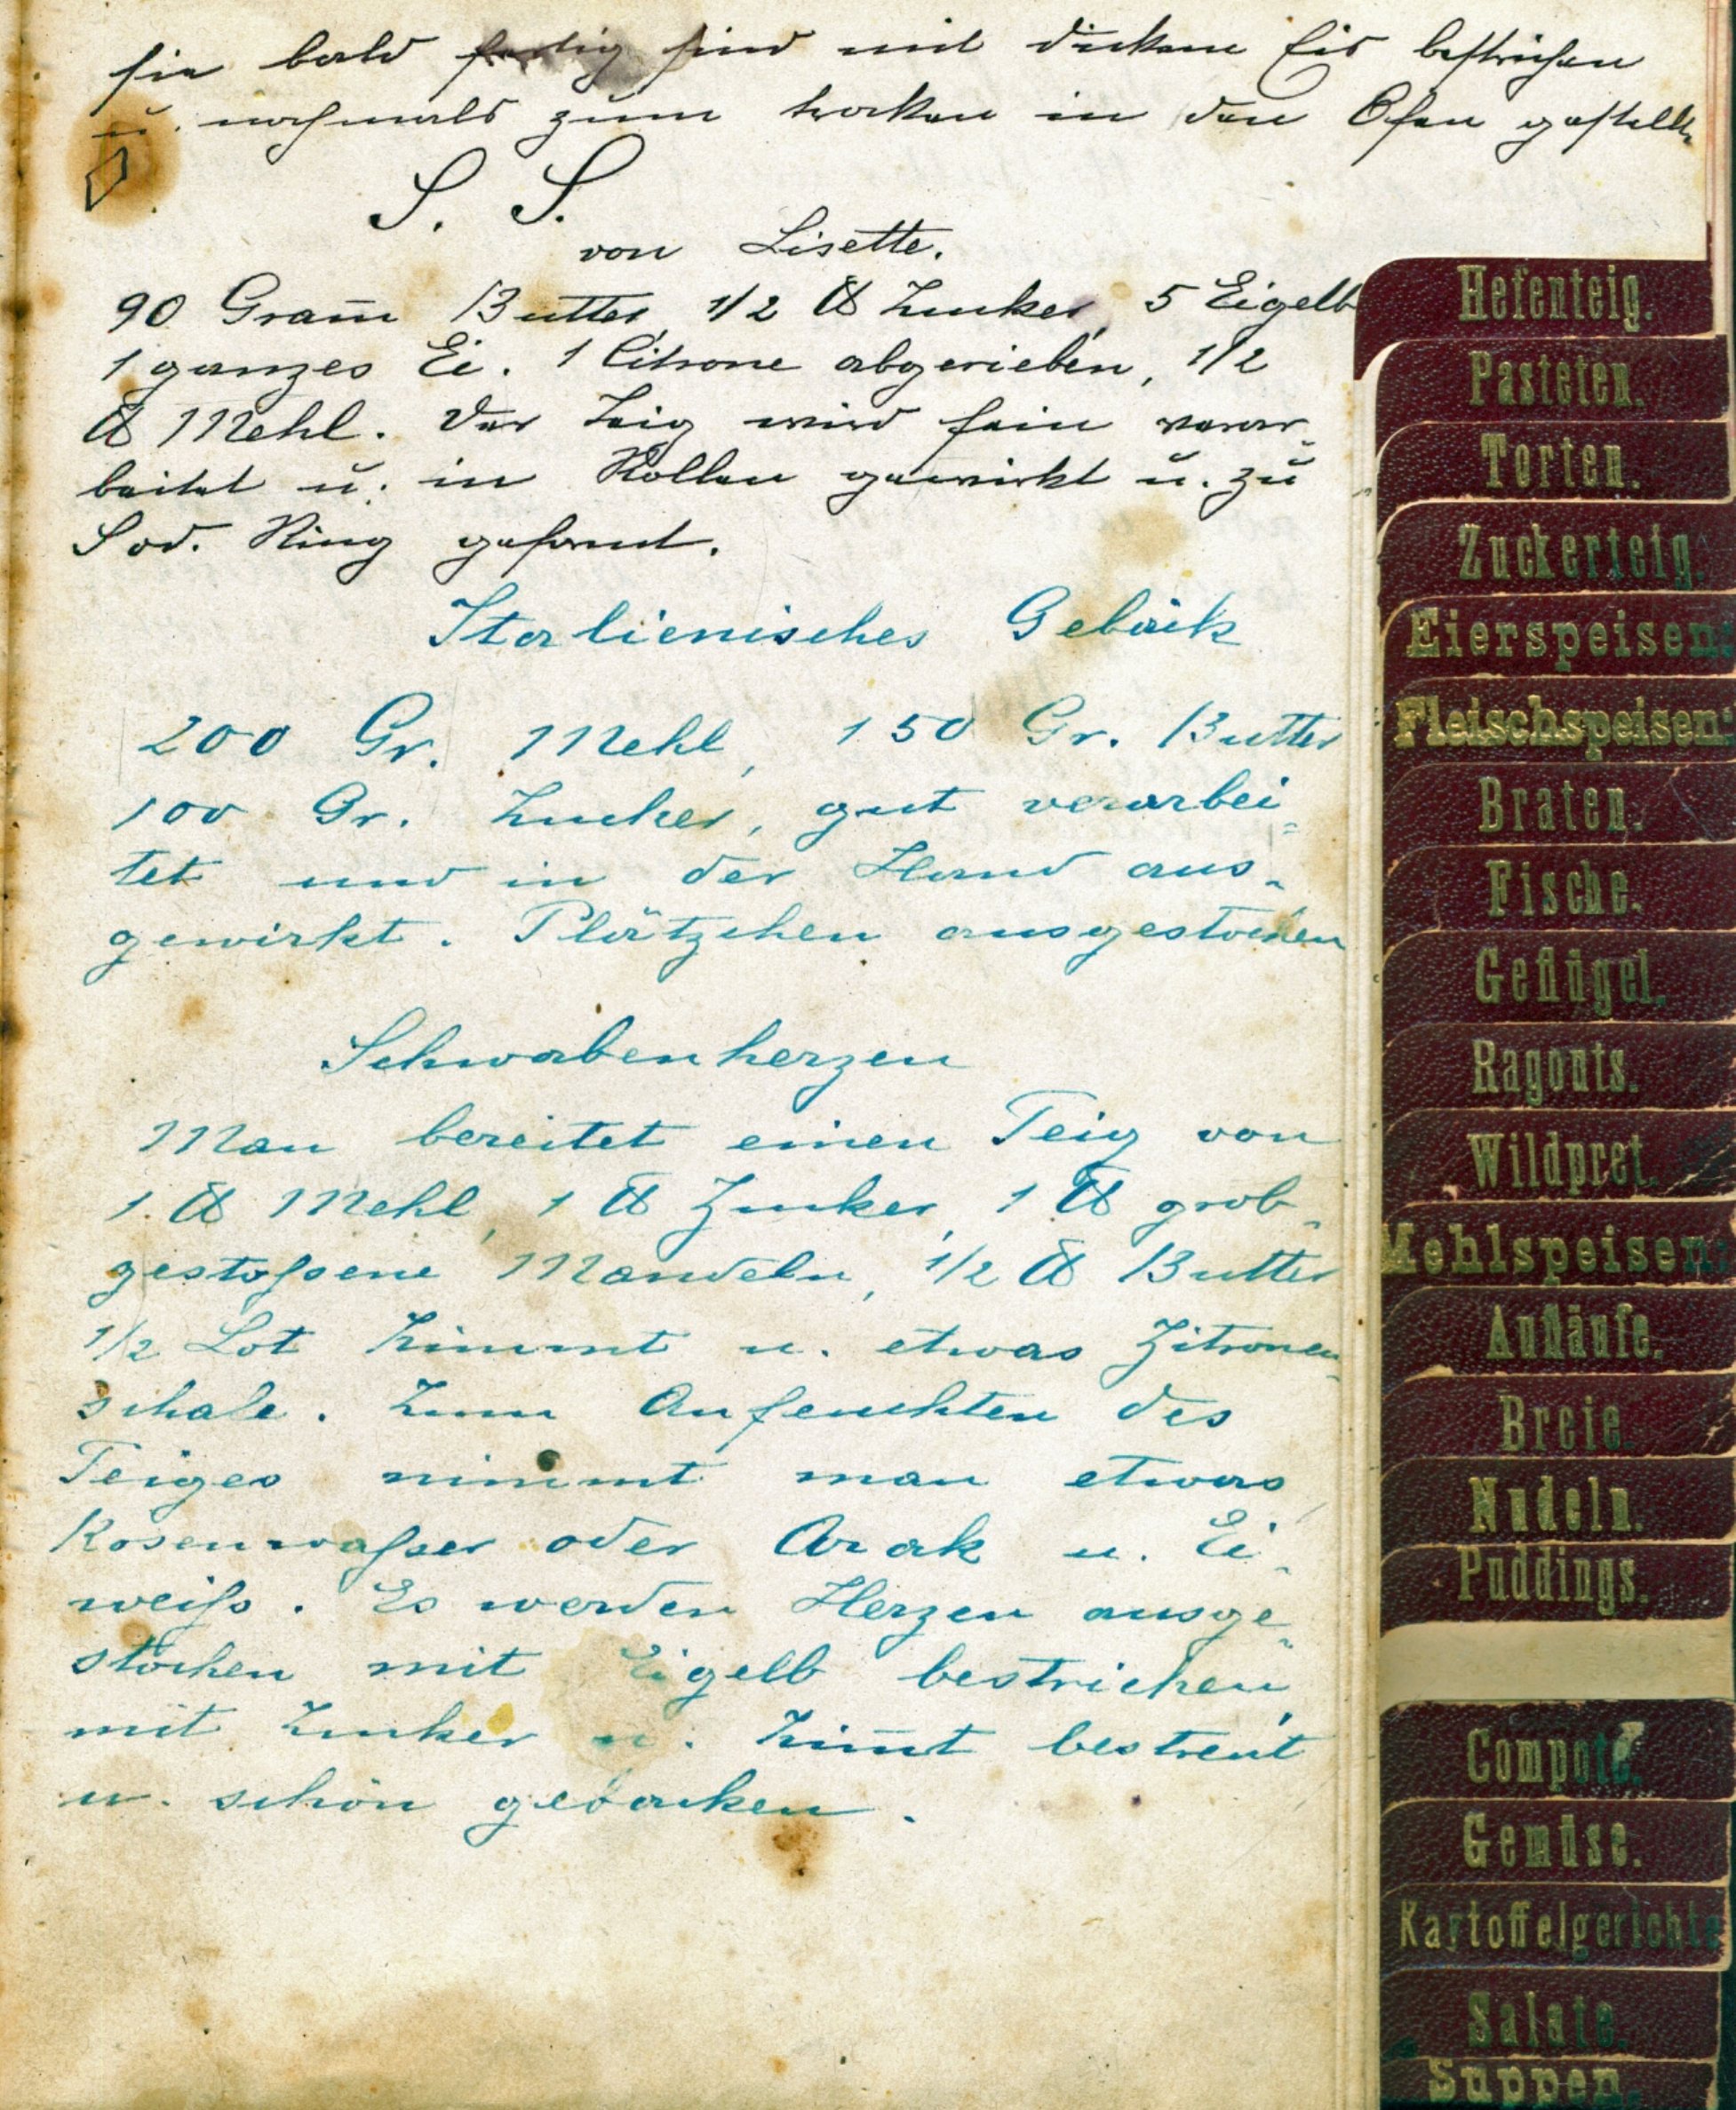 sie bald fertig sind mit dickem Eis bestrichen
u. nochmals zum trocken in den Ofen gestellt.
S. S.
von Lisette.
90 Gram̅ Butter, 1/2 ℔ Zucker, 5 Eigelb
1 ganzes Ei. 1 Citrone abgerieben, 1/2
℔ Mehl. Der Teig wird fein verar„
beitet u. in Rollen gewirkt u. zu
S od. Ring geformt.
Italienisches Gebäck
200 Gr. Mehl, 150 Gr. Butter
100 Gr. Zucker, gut verarbei„
tet und in der Hand aus„
gewirkt. Plätzchen ausgestochen
Schwabenherzen
Man bereitet einen Teig von
1 ℔ Mehl, 1 ℔ Zucker, 1 ℔ grob„
gestoßene Mandeln, 1/2 ℔ Butter
1/2 Lot Zimmt u. etwas Zitronen„
schale. Zum Anfeuchten des
Teiges nimmt man etwas
Rosenwaßer oder Arak u. Ei„
weiß. Es werden Herzen ausge„
stochen mit Eigelb bestrichen,
mit Zucker u. Zim̅t bestreut
u. schön gebacken.
Hefenteig.
Pasteten.
Torten.
Zuckerteig.
Eierspeisen.
Fleischspeisen.
Braten.
Fische.
Geflügel.
Ragouts.
Wildpret.
Mehlspeisen.
Aufläufe.
Breie.
Nudeln.
Puddings.
Compote.
Gemüse.
Kartoffelgerichte
Salate.
Suppen.